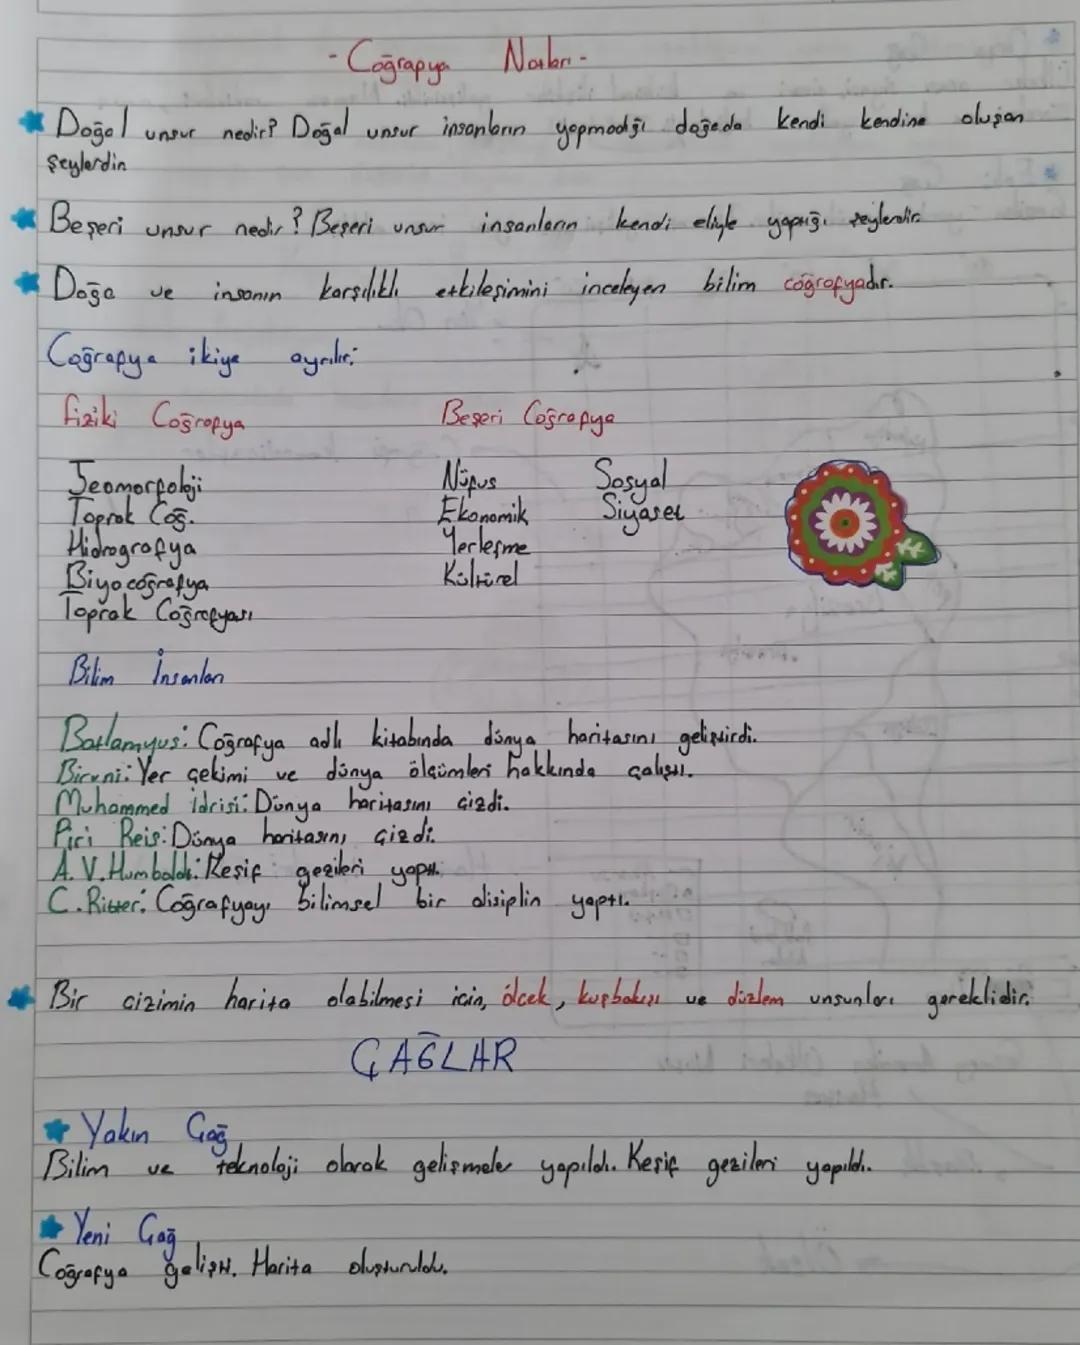 - Coğrafya Notları -
Doğal unsur nedir? Doğal unsur insanların yapmadığı doğada kendi kendine oluşan
şeylerdir.
Beşeri unsur nedir? Beşeri unsur insanların kendi eliyle yaptığı şeylerdir.
Doğa ve insanın karşılıklı etkileşimini inceleyen bilim coğrafyadır.
Coğrafya ikiye ayrılır:
Fiziki Coğrafya Beşeri Coğrafya
Jeomorfoloji Nüfus Sosyal
Toprak Coğ. Ekonomik Siyaset
Hidrografya Yerleşme
Biyocoğrafya Kültürel
Toprak Coğrafyası
Bilim İnsanları
Batlamyus: Coğrafya adlı kitabında dünya haritasını geliştirdi.
Biruni: Yer çekimi ve dünya ölçümleri hakkında çalıştı.
Muhammed idrisi: Dünya haritasını çizdi.
Piri Reis: Dünya haritasını çizdi.
A. V. Humboldt: Keşif gezileri yaptı.
C. Ritter: Coğrafyayı bilimsel bir disiplin yaptı.
Bir çizimin harita olabilmesi için, ölçek, kuşbakışı ve düzlem unsurları gereklidir.
ÇAĞLAR
Yakın Çağ
Bilim ve teknoloji olarak gelişmeler yapıldı. Keşif gezileri yapıldı.
Yeni Çağ
Coğrafya gelişti. Harita oluşturuldu.